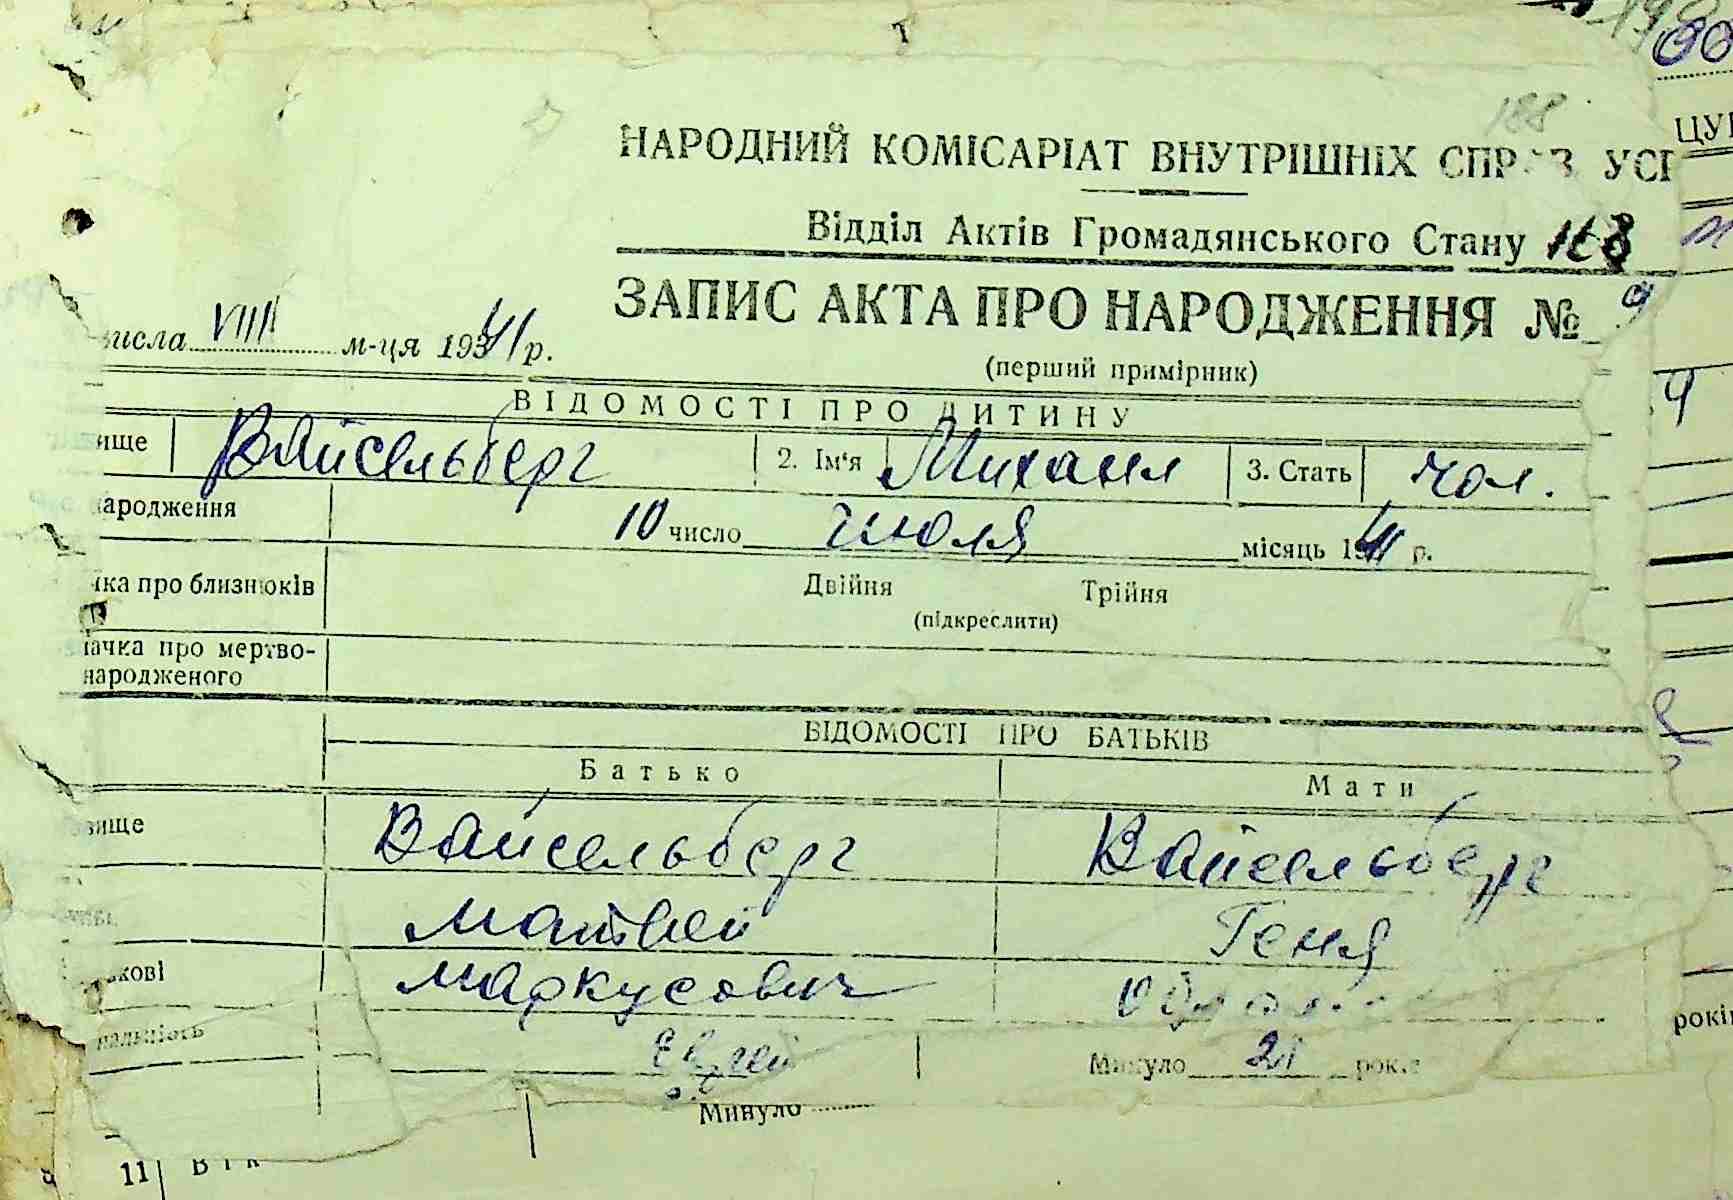 188
НАРОДНИЙ КОМІСАРІАТ ВНУТРІШНІХ СПРАВ УСР
Відділ Актів Громадянського Стану 168
ЗАПИС АКТА ПРО НАРОДЖЕННЯ № 9
числа VIII м-ця 1941 р.
(перший примірник)
ВІДОМОСТІ ПРО ДИТИНУ
ище Вайсельберг 2. Ім'я Михаил 3. Стать чол.
народження 10 число июля місяць 1941 р.
чка про близнюків Двійня Трійня
(підкреслити)
начка про мертво-
народженого
ВІДОМОСТІ ПРО БАТЬКІВ
Батько Мати
звище Вайсельберг Вайсельберг
Матвей Геня
ькові Маркусович
нальність Еврей Минуло 21 років
Минуло
11 Вік
років